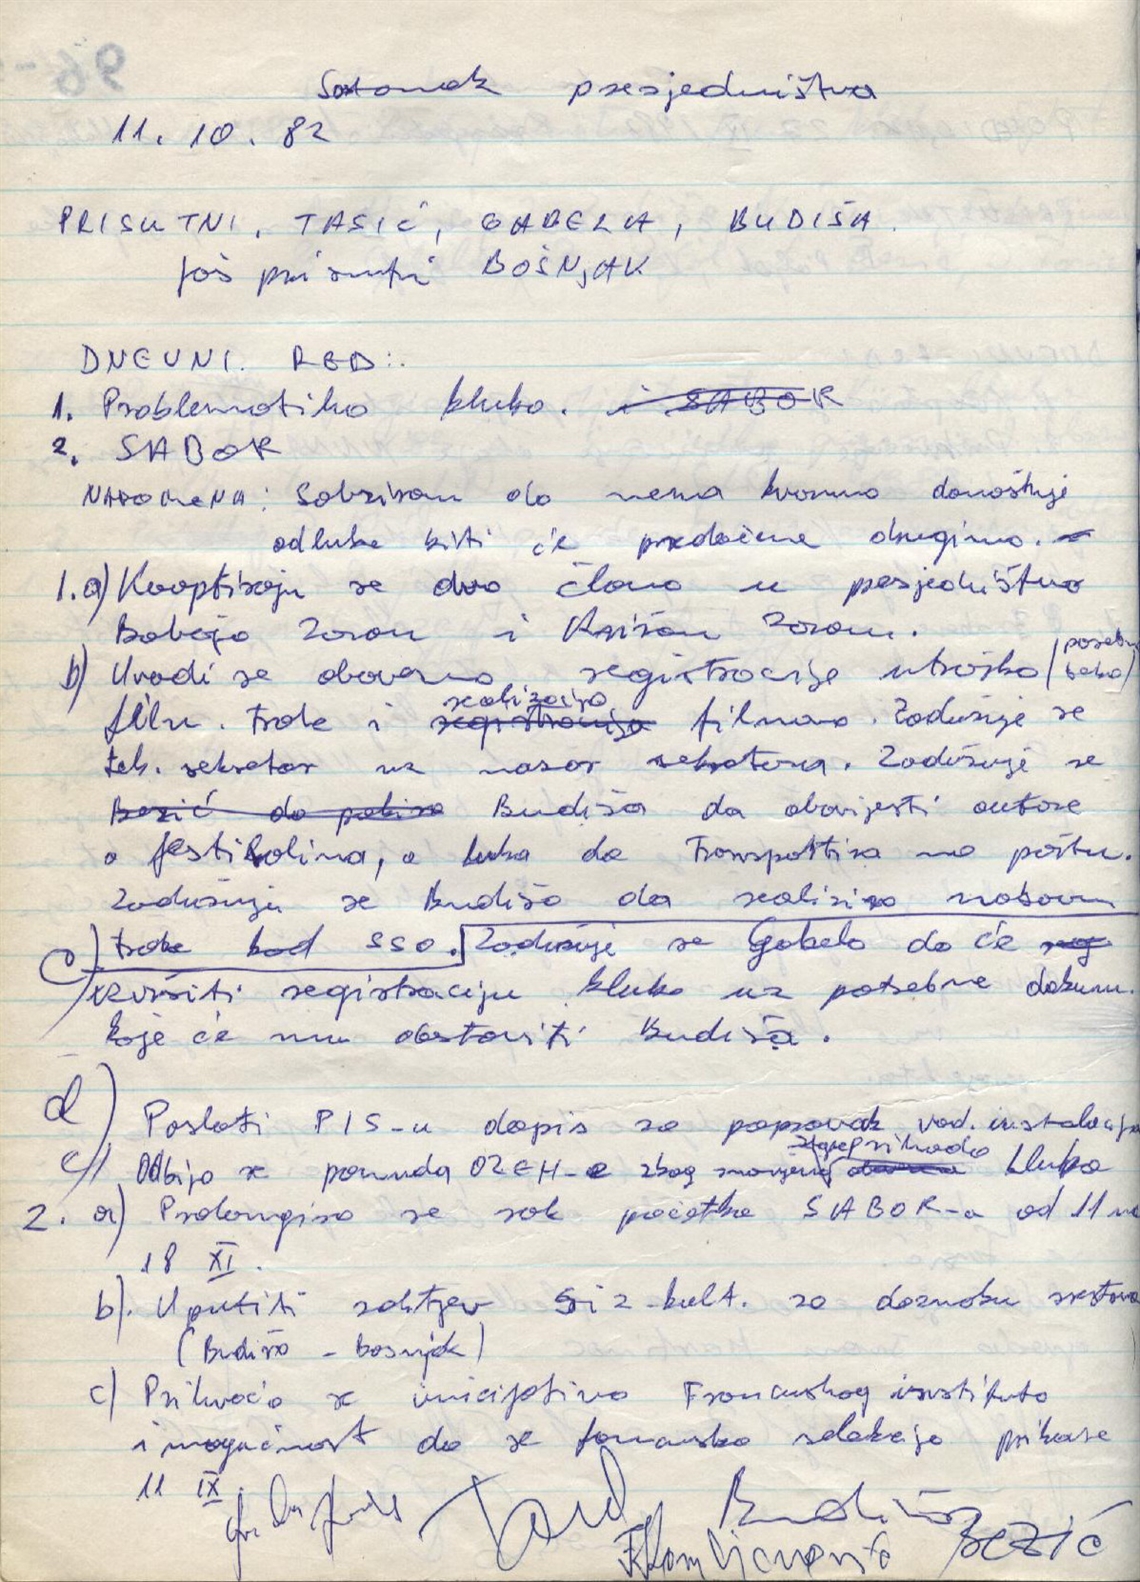 Sastanak presjedništva
11. 10. 82
PRISUTNI, TASIĆ, GABELA, BUDIŠA.
još prisutni BOŠNJAK
DNEVNI. RED:.
1. Problematika kluba. i SABOR
2. SABOR
NAPOMENA: Sobzirom da nema kvoruma donošenje
odluka biti će predočene drugima.
1. a) Kooptiraju se dva člana u presjedništvo
Babojo Zoran i Križan Zoran.
b) Uvodi se obavezno registracije utroška (poseb
teka)
realizacija
film. trake i registracija filmova. Zadužuje se
teh. sekretar uz nazor sekretara. Zadužuje se
Bezić da pobira Budiša da obavijesti autore
o festivalima, a luka da Transportira na poštu.
Zadužuje se Budiša da realizira nabavu
c) trake kod SSO. Zadužuje se Gabela da će
izvršiti registraciju kluba uz potrebne dokum.
koje će mu dostaviti Budiša.
d) Poslati PIS-u dopis za popravak vod. instalacija
e) Odbija se ponuda OZEH-a zbog smanjenja kluba
2. a) Prolongira se rok početka SABOR-a od 11 na
18 XI.
b). Uputiti zahtjev Siz-kult. za doznaku sredstava
(Budiša - Bosnjak)
c) Prihvaća se inicijativa Francuskog instituta
i mogućnost da se francuska selekcija prikaže
11 IX.
Budiša
BEZIĆ